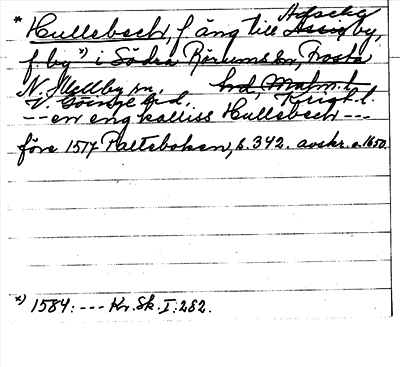 * Hullebeck, f äng till Assig by,
f. by *) i Södra Rörums sn, Frosta
N. Mellby sn, hd, Malm. l.
V. Göinge hd. Krist. l.
--- en eng kalliss Hullebeck ---
före 1517 Palteboken, s. 342. avskr. c. 1650.
*) 1584: --- Kr. Sk. I: 282.